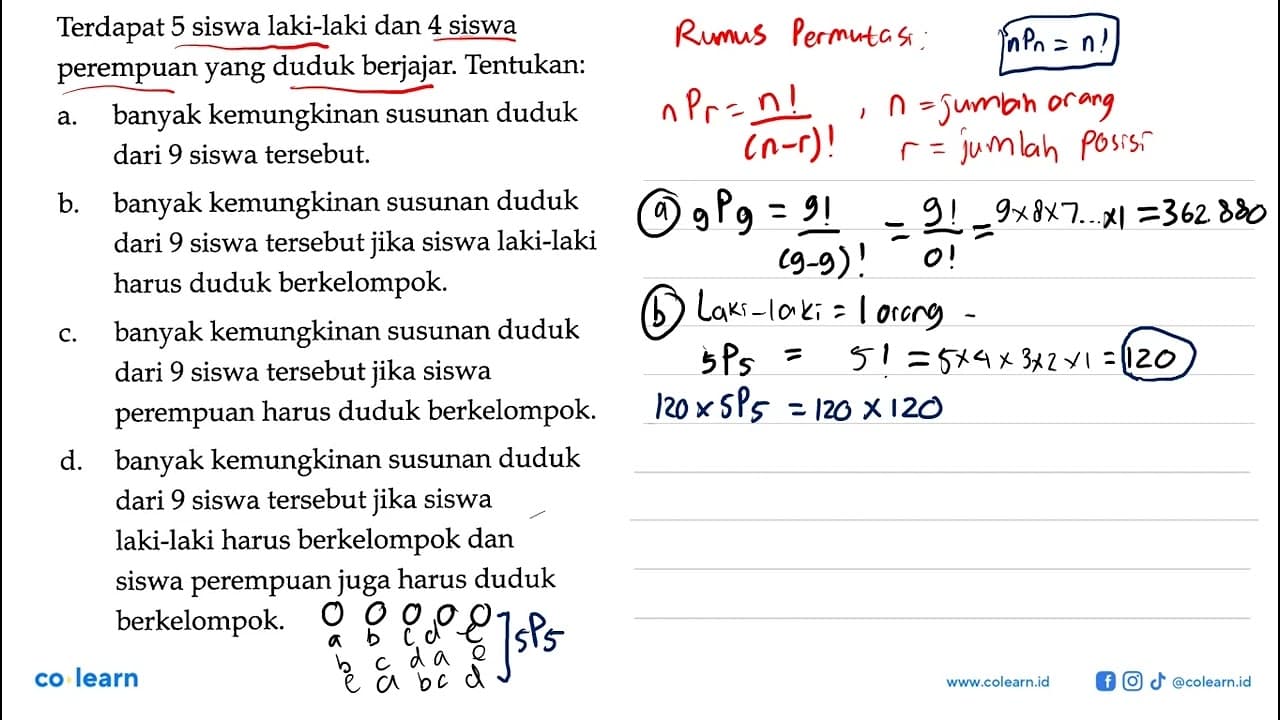 Terdapat 5 siswa laki-laki dan 4 siswa
perempuan yang duduk berjajar. Tentukan:
a. banyak kemungkinan susunan duduk
dari 9 siswa tersebut.
b. banyak kemungkinan susunan duduk
dari 9 siswa tersebut jika siswa laki-laki
harus duduk berkelompok.
c. banyak kemungkinan susunan duduk
dari 9 siswa tersebut jika siswa
perempuan harus duduk berkelompok.
d. banyak kemungkinan susunan duduk
dari 9 siswa tersebut jika siswa
laki-laki harus berkelompok dan
siswa perempuan juga harus duduk
berkelompok.
O O O O O
a b c d e ] 5P5
b c d a e
e a b c d
Rumus Permutasi:
nPn = n!
nPr = n! / (n-r)! , n = jumlah orang
r = jumlah posisi
(a) 9P9 = 9! / (9-9)! = 9! / 0! = 9x8x7...x1 = 362.880
(b) Laki-laki = 1 orang -
5P5 = 5! = 5x4x3x2x1 = 120
120 x 5P5 = 120 x 120
co learn
www.colearn.id
@colearn.id